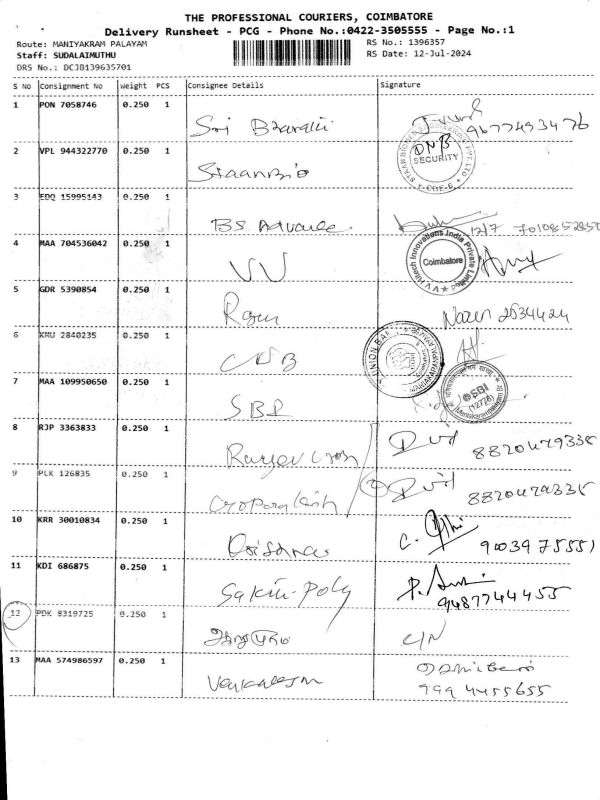 THE PROFESSIONAL COURIERS, COIMBATORE
Delivery Runsheet - PCG - Phone No.:0422-3505555 - Page No.:1
Route: MANIYAKRAM PALAYAM
RS No.: 1396357
Staff: SUDALAIMUTHU
RS Date: 12-Jul-2024
DRS No.: DCJB139635701
S No Consignment No Weight PCS Consignee Details Signature
1 PON 7058746 0.250 1 Sri Bharathi 9677493476
2 VPL 944322770 0.250 1 Staanbio DNB SECURITY CBE-6
3 EDQ 15995143 0.250 1 BS Advance 12/7
4 MAA 704536042 0.250 1 VV V V Hitech Innovations India Private Limited Coimbatore
5 GDR 5390854 0.250 1 2534424
6 KMU 2840235 0.250 1 UNION BANK
7 MAA 109950650 0.250 1 SBI SBI (12776)
8 RJP 3363833 0.250 1
9 PLK 126835 0.250 1
10 KRR 30010834 0.250 1 9003975551
11 KDI 686875 0.250 1 Sakthi Poly 9487744455
12 PDK 8319725 0.250 1 C/N
13 MAA 574986597 0.250 1 999 4455655